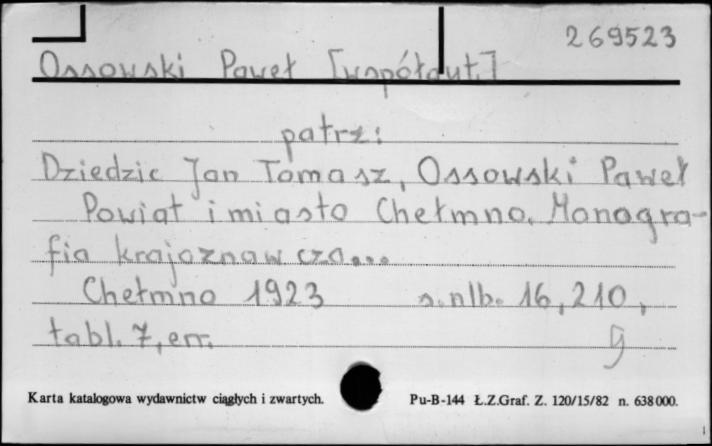 269523
Ossowski Paweł [współaut.]
patrz:
Dziedzic Jan Tomasz, Ossowski Paweł
Powiat i miasto Chełmno. Monogra-
fia krajoznawcza...
Chełmno 1923 s.nlb. 16, 210,
tabl. 7, err.
Karta katalogowa wydawnictw ciągłych i zwartych. Pu-B-144 Ł.Z.Graf. Z. 120/15/82 n. 638000.